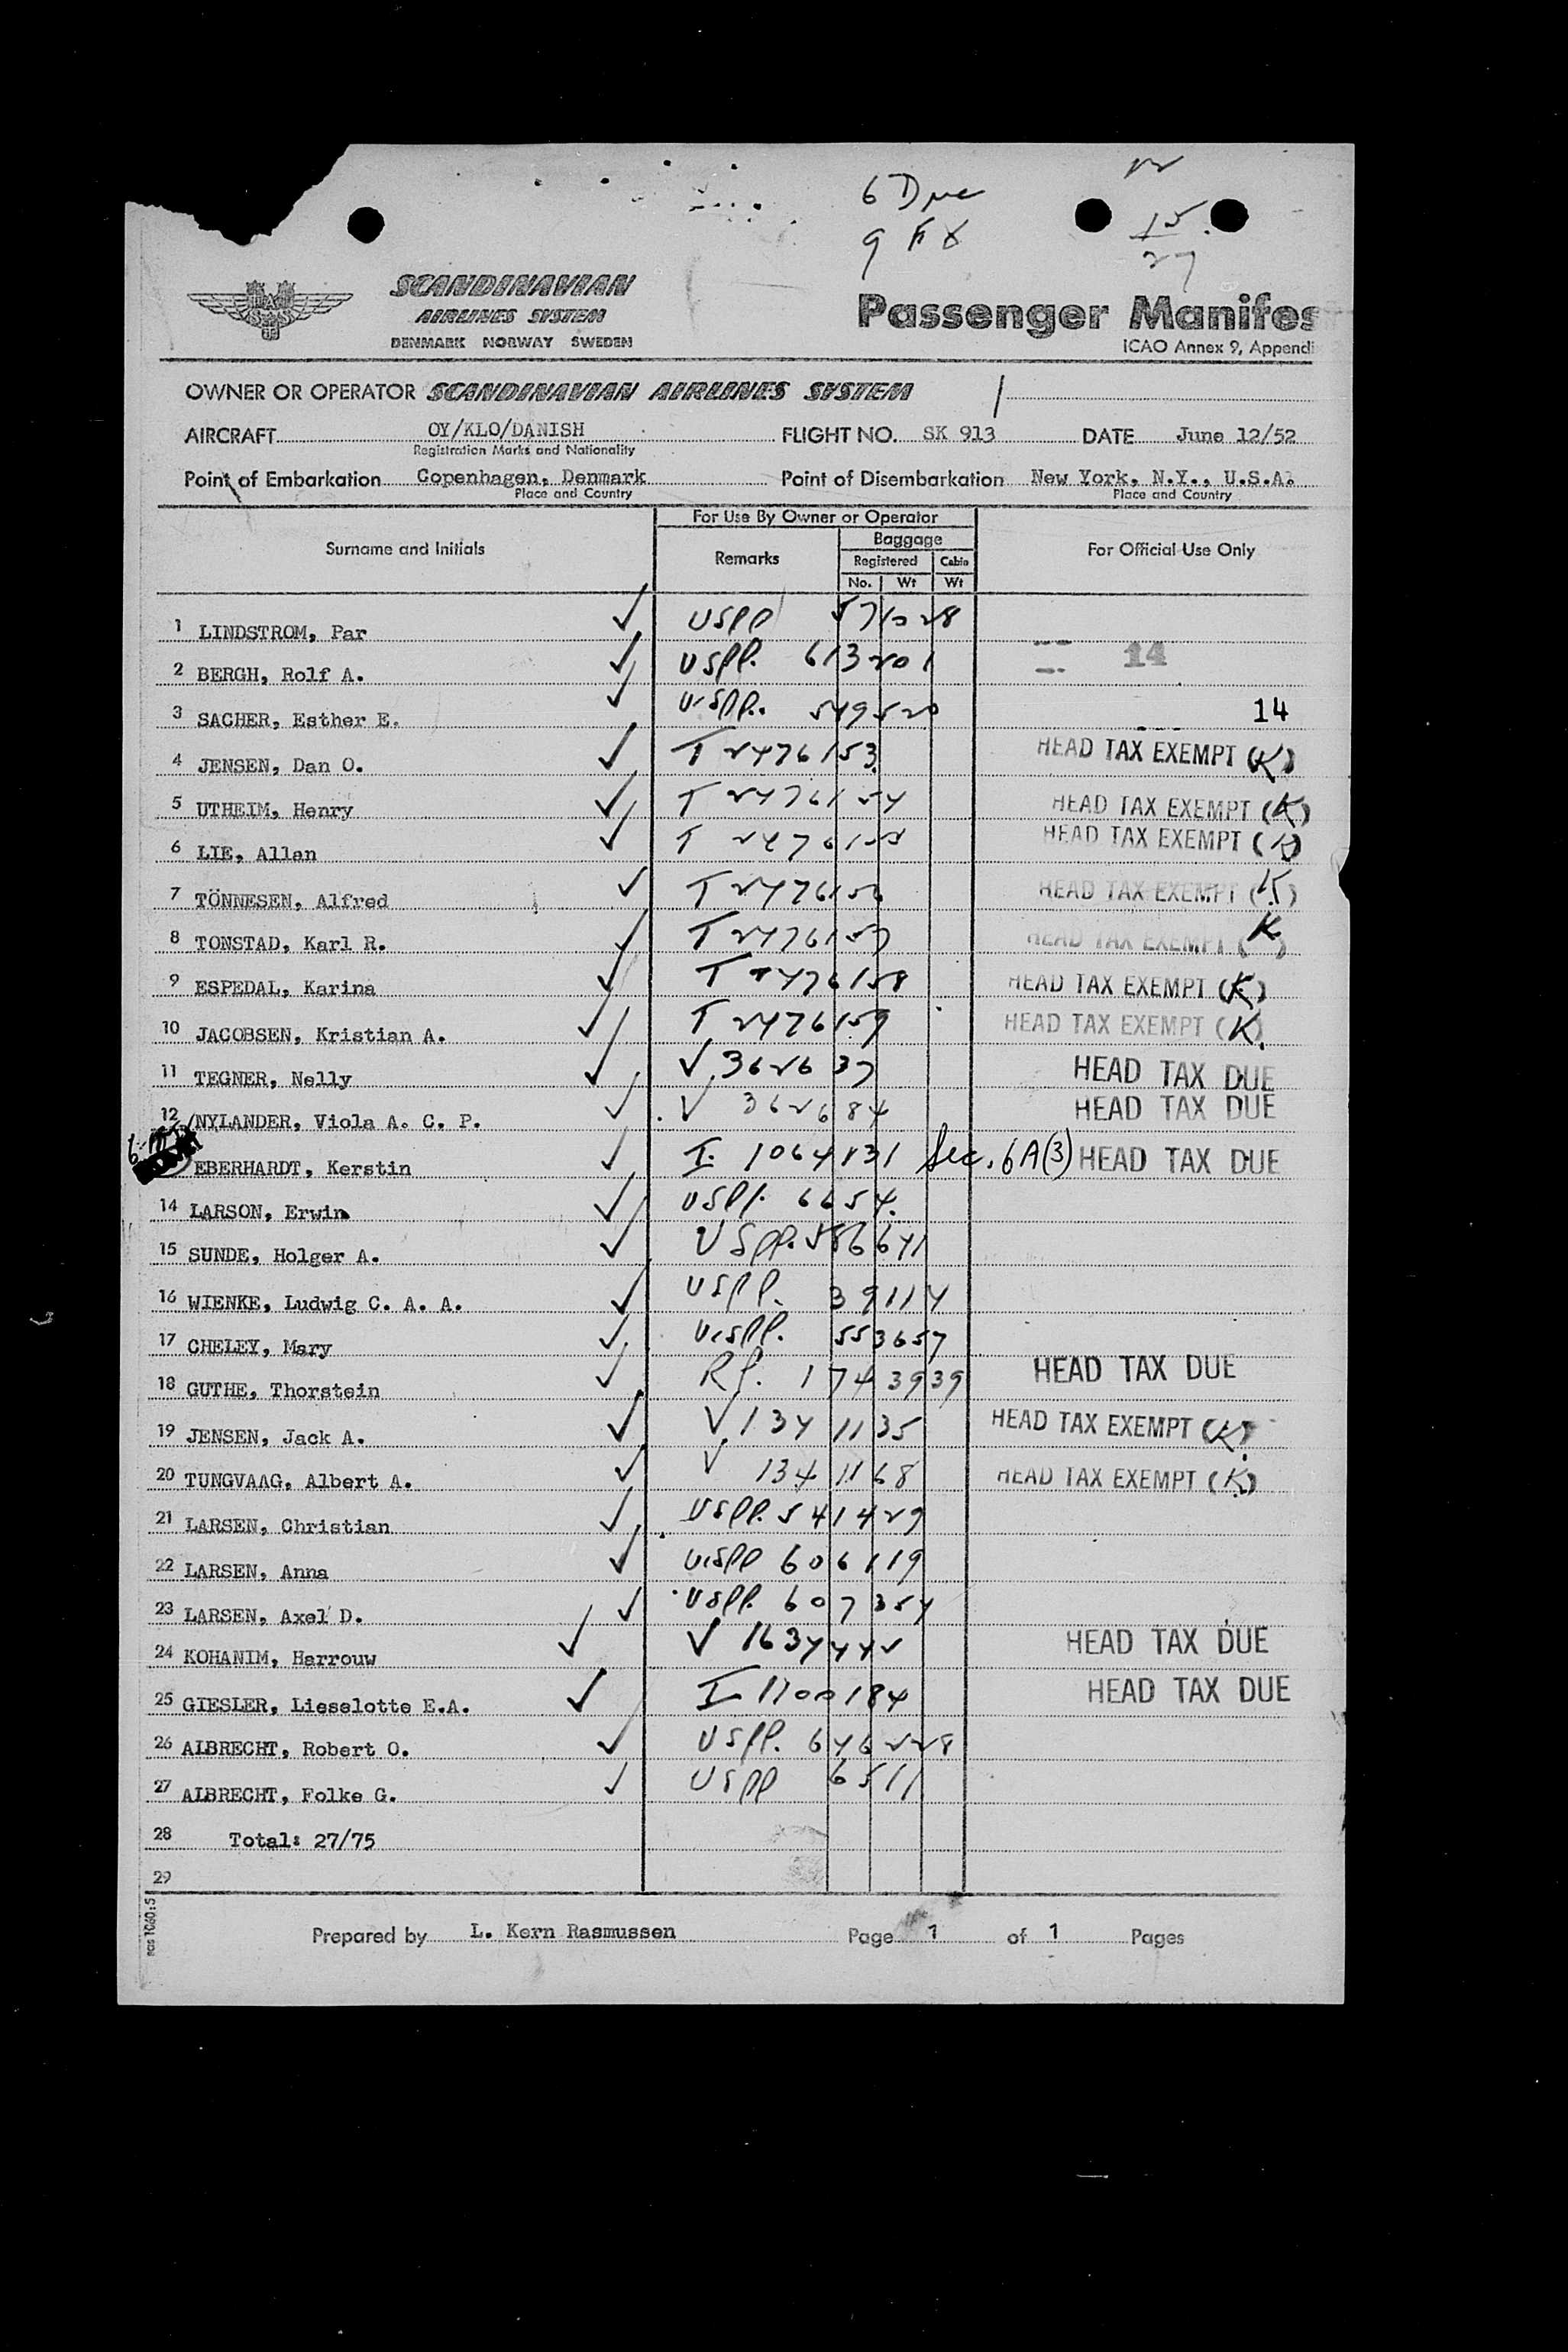 6 Due
9 EX
15
27
SCANDINAVIAN
AIRLINES SYSTEM
DENMARK NORWAY SWEDEN
Passenger Manifes
ICAO Annex 9, Appendi
OWNER OR OPERATOR SCANDINAVIAN AIRLINES SYSTEM
AIRCRAFT OY/KLO/DANISH FLIGHT NO. SK 913 DATE June 12/52
Registration Marks and Nationality
Point of Embarkation Copenhagen, Denmark Point of Disembarkation New York, N.Y., U.S.A.
Place and Country Place and Country
For Use By Owner or Operator
Surname and Initials Remarks Baggage For Official Use Only
Registered Cabin
No. Wt Wt
1 LINDSTROM, Par ✓ USPP 571028
2 BERGH, Rolf A. ✓ USPP. 613201 14
3 SACHER, Esther E. ✓ U.SPP. 549520 14
4 JENSEN, Dan O. ✓ T 2476153 HEAD TAX EXEMPT (K)
5 UTHEIM, Henry ✓ T 2476154 HEAD TAX EXEMPT (K)
6 LIE, Allan ✓ T 2476155 HEAD TAX EXEMPT (K)
7 TÖNNESEN, Alfred ✓ T 2476156 HEAD TAX EXEMPT (K)
8 TONSTAD, Karl R. ✓ T 2476157 HEAD TAX EXEMPT (K)
9 ESPEDAL, Karina ✓ T 2476158 HEAD TAX EXEMPT (K)
10 JACOBSEN, Kristian A. ✓ T 2476159 HEAD TAX EXEMPT (K)
11 TEGNER, Nelly ✓ V 362637 HEAD TAX DUE
12 NYLANDER, Viola A. C. P. ✓ V 362684 HEAD TAX DUE
EBERHARDT, Kerstin ✓ I. 1064131 Sec. 6A(3) HEAD TAX DUE
14 LARSON, Erwin ✓ USPP. 6654.
15 SUNDE, Holger A. ✓ USPP. 586641
16 WIENKE, Ludwig C. A. A. ✓ USPP. 39114
17 CHELEY, Mary ✓ U.SPP. 553657
18 GUTHE, Thorstein ✓ RP. 1743939 HEAD TAX DUE
19 JENSEN, Jack A. ✓ V 1341135 HEAD TAX EXEMPT (K)
20 TUNGVAAG, Albert A. ✓ V 1341168 HEAD TAX EXEMPT (K)
21 LARSEN, Christian ✓ USPP. 541429
22 LARSEN, Anna ✓ U.SPP 606119
23 LARSEN, Axel D. ✓ USPP. 607354
24 KOHANIM, Harrouw ✓ V 1634442 HEAD TAX DUE
25 GIESLER, Lieselotte E.A. ✓ I 1700184 HEAD TAX DUE
26 ALBRECHT, Robert O. ✓ USPP. 646228
27 ALBRECHT, Folke G. ✓ USPP 6511
28 Total: 27/75
29
Prepared by L. Kern Rasmussen Page 1 of 1 Pages